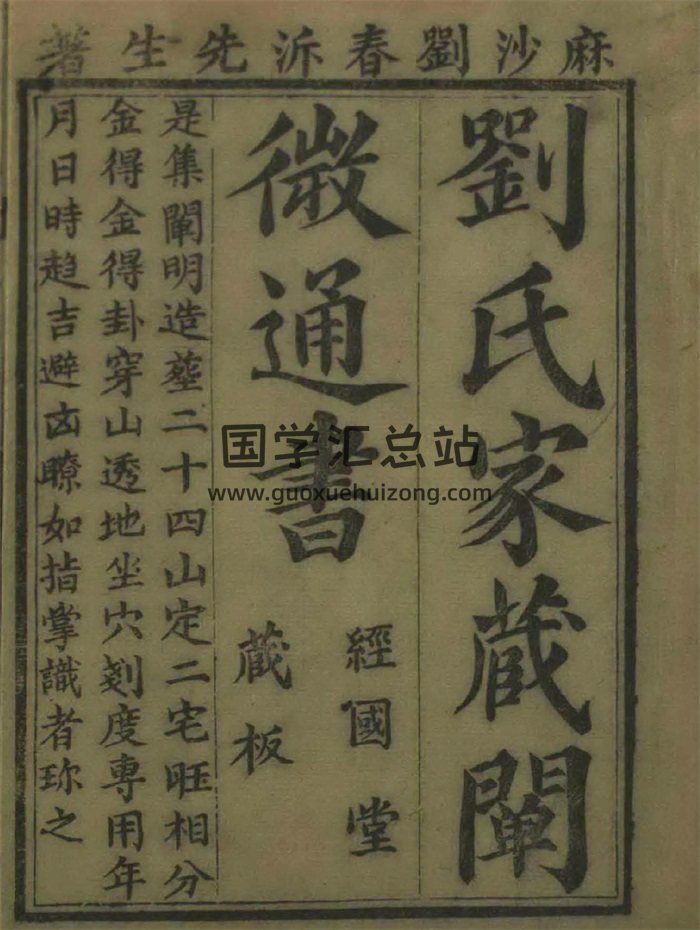 麻沙劉春沂先生著
劉氏家蔵闡
微通書
經國堂
蔵板
是集闡明造塟二十四山定二宅旺相分
金得金得卦穿山透地坐穴刻度專用年
月日時趋吉避凶瞭如指掌識者珎之
国学汇总站
www.guoxuehuizong.com